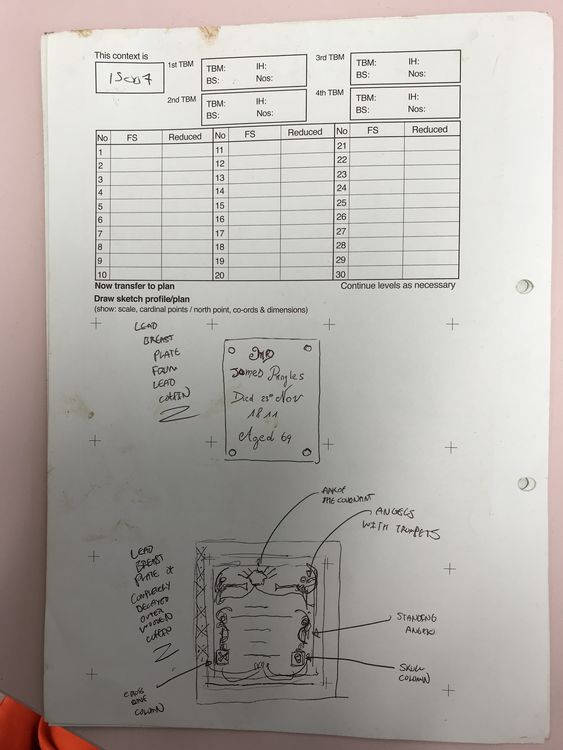 This context is
1st TBM
TBM: IH:
BS: Nos:
3rd TBM
TBM: IH:
BS: Nos:
2nd TBM
TBM: IH:
BS: Nos:
4th TBM
TBM: IH:
BS: Nos:
No FS Reduced No FS Reduced No FS Reduced
1 11 21
2 12 22
3 13 23
4 14 24
5 15 25
6 16 26
7 17 27
8 18 28
9 19 29
10 20 30
Now transfer to plan
Continue levels as necessary
Draw sketch profile/plan
(show: scale, cardinal points / north point, co-ords & dimensions)
LEAD
BREAST
PLATE
FROM
LEAD
COFFIN
James Pringles
Died 23rd Nov
1811
Aged 69
ARK OF
THE COVENANT
ANGELS
WITH TRUMPETS
LEAD
BREAST
PLATE of
COMPLETELY
DECAYED
OUTER
WOODEN
COFFIN
STANDING
ANGEL
SKULL
COLUMN
BONE
COLUMN